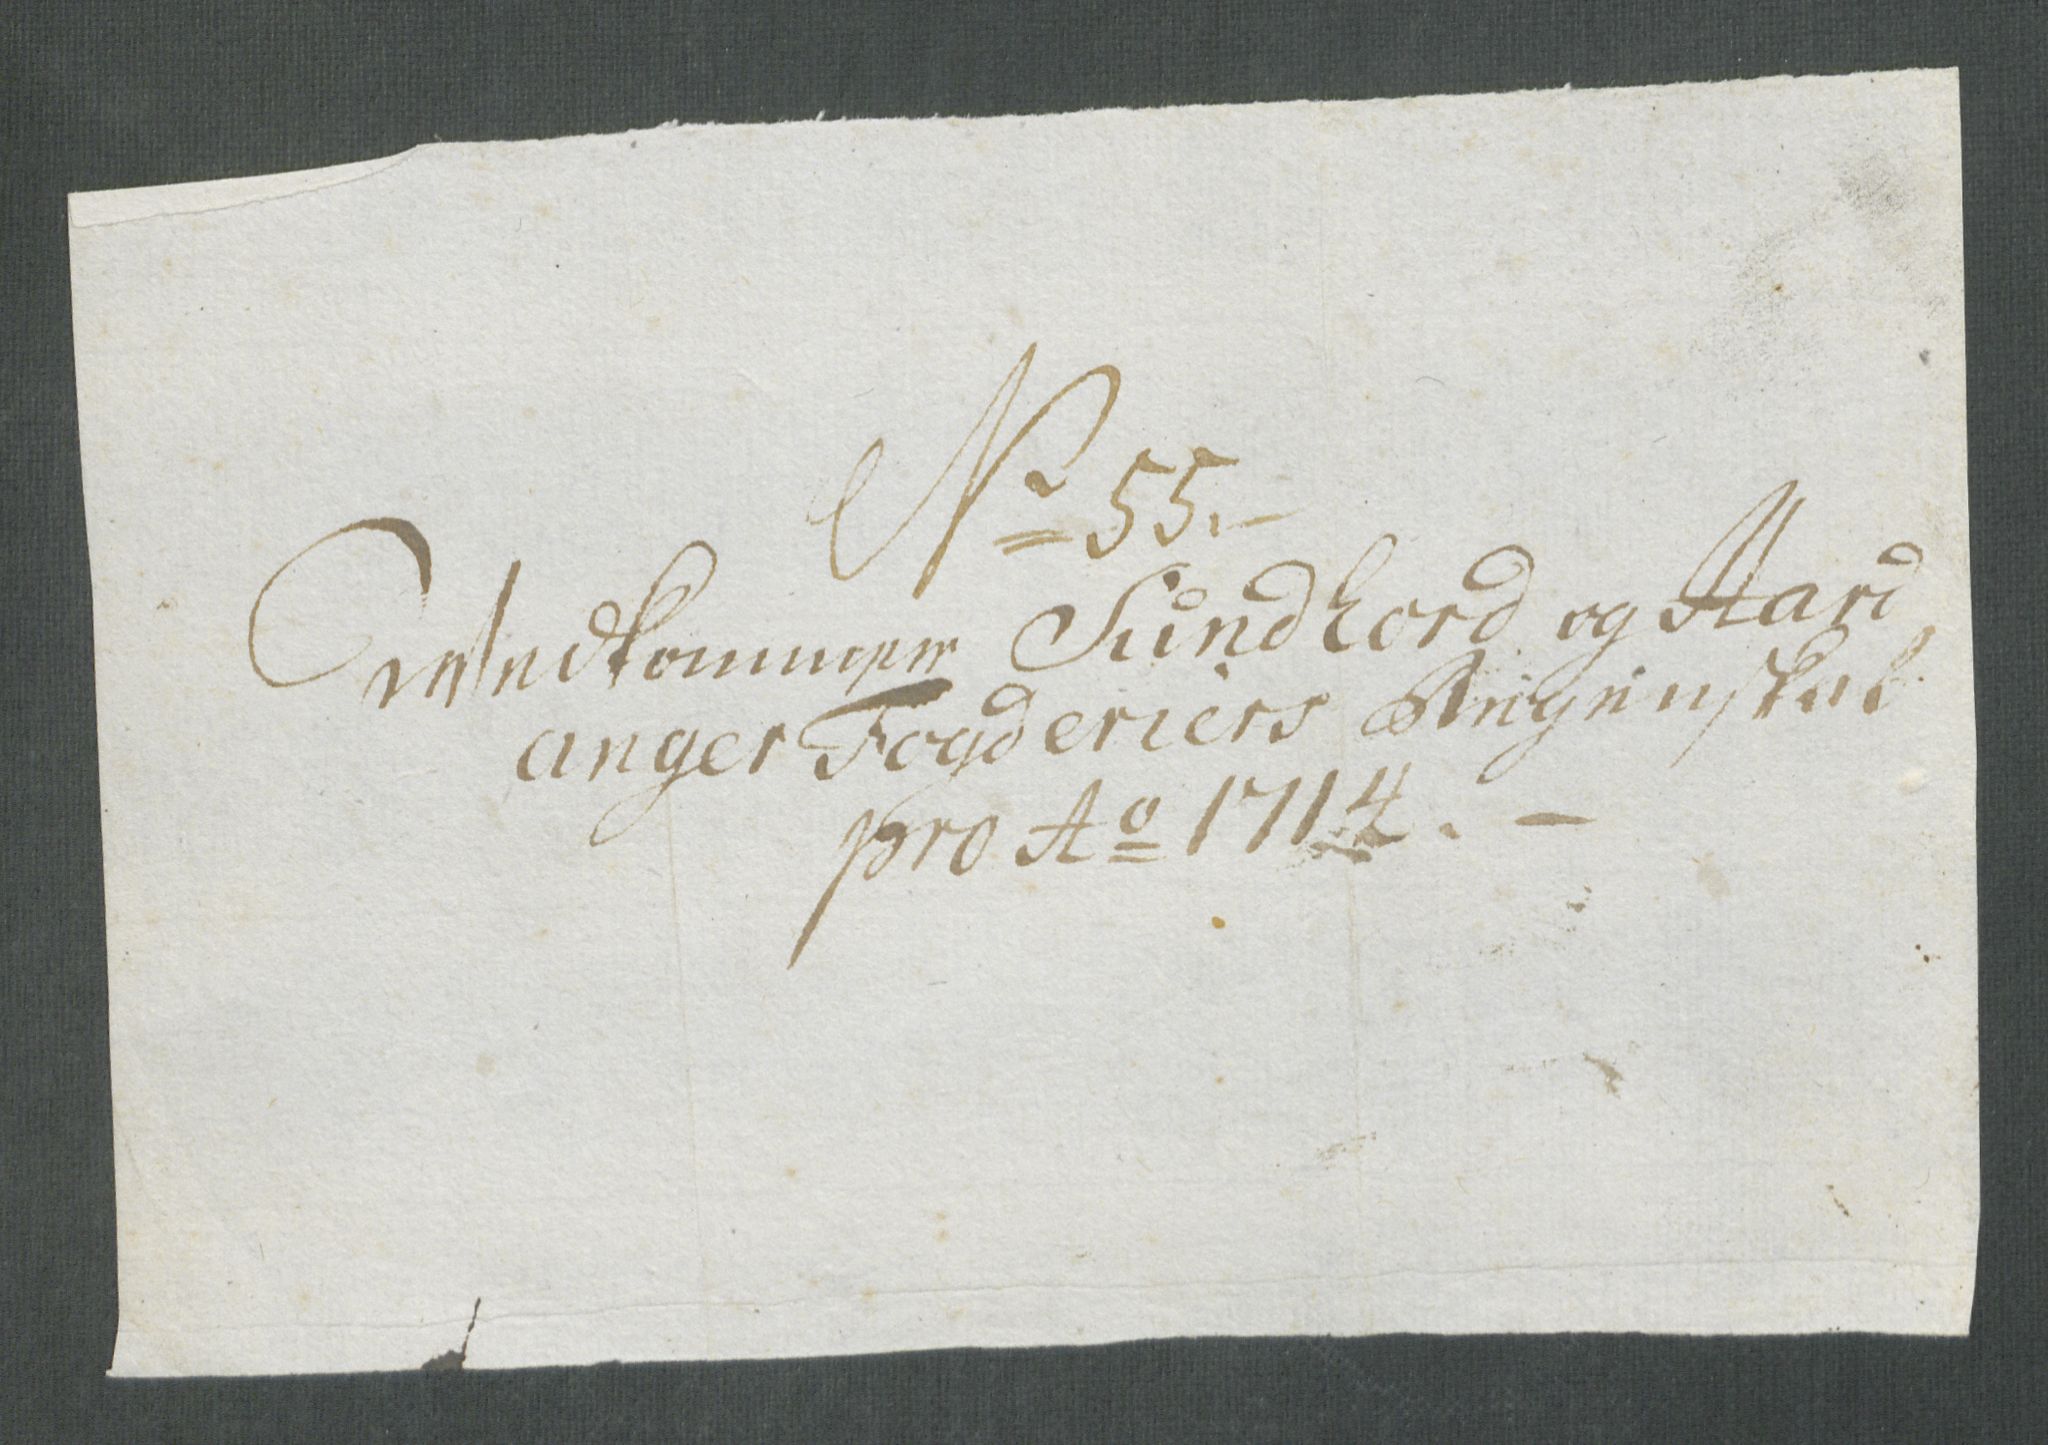 No 55.-
Vedkommer Sundhord og Hard
anger Fogderiers Regenskab
pro Ao 1714. -